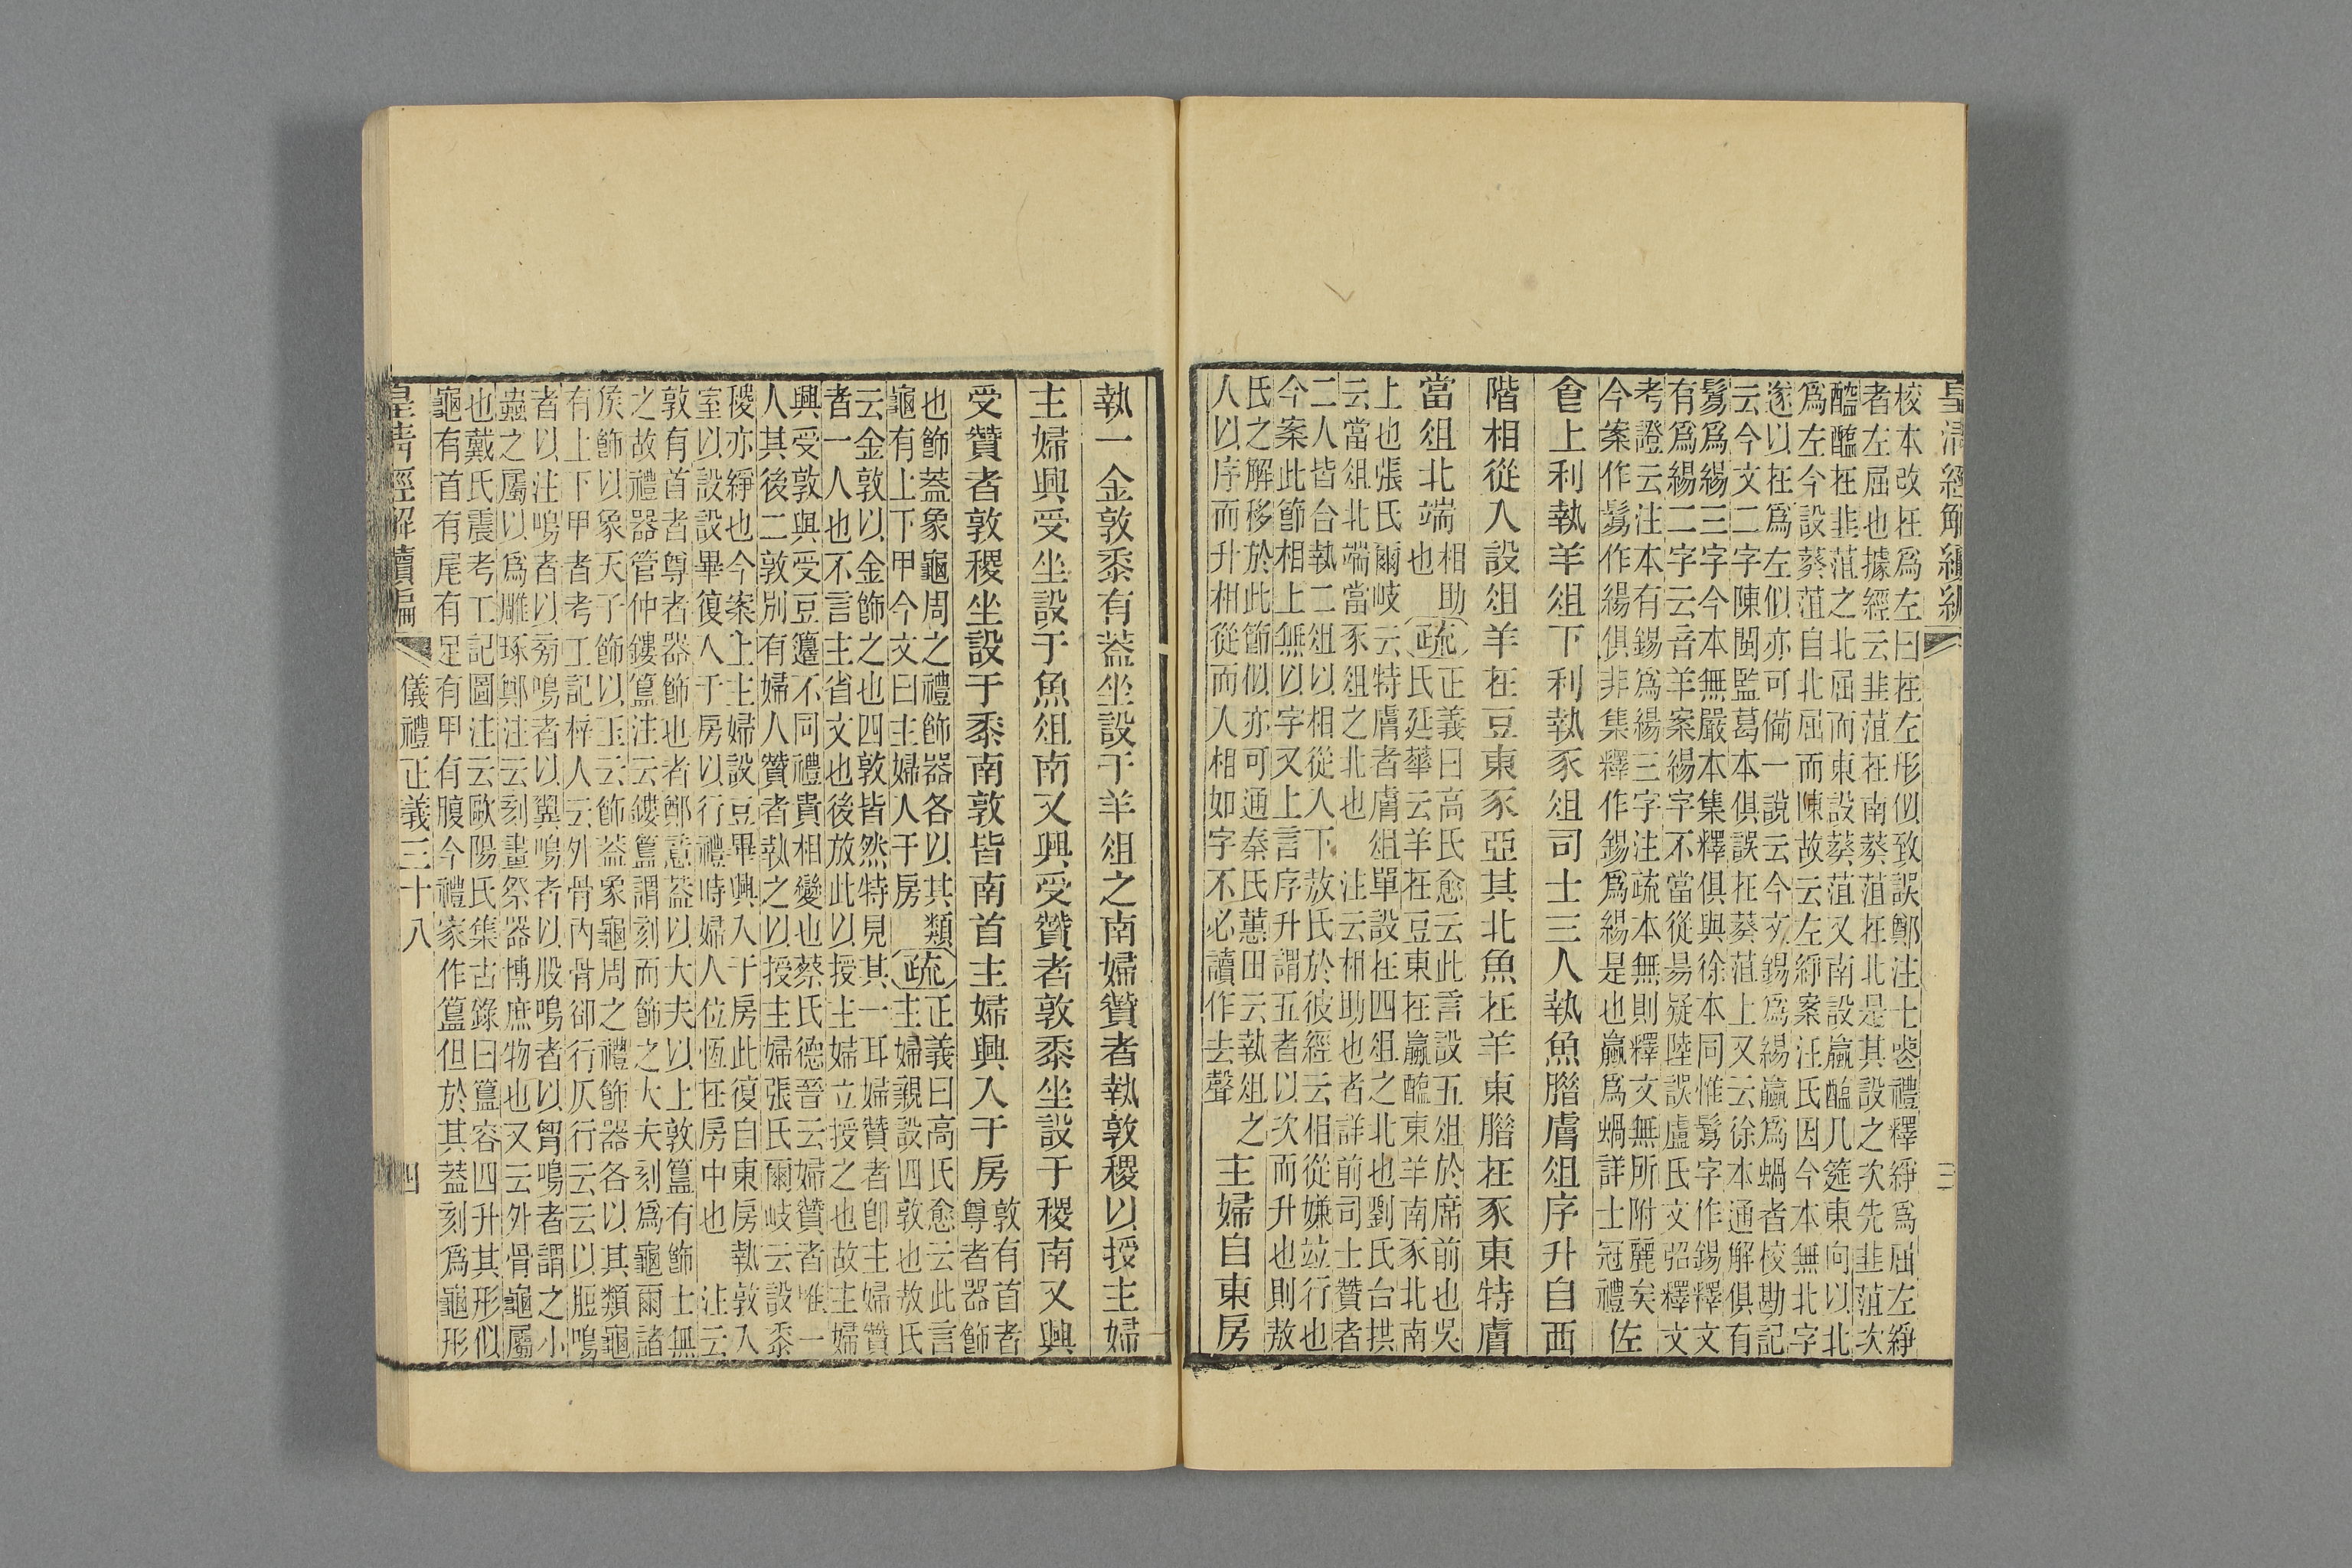 皇清經解續編
三
校本改在爲左曰在左形似致誤鄭注士喪禮釋綪爲屈左綪
者左屈也據經云韭菹在南葵菹在北是其設之次先韭菹次
醓醢在韭菹之北屈而東設葵菹又南設蠃醢几筵東向以北
爲左今設葵菹自北屈而陳故云左綪案汪氏因今本無北字
遂以在爲左似亦可備一說云今文錫爲緆蠃爲蝸者校勘記
云今文二字陳閩監葛本俱誤在葵菹上又云徐本通解俱有
鬄爲緆三字今本無嚴本集釋俱與徐本同惟鬄字作錫釋文
有爲緆二字云音羊案緆字不當從昜疑陸誤盧氏文弨釋文
考證云注本有錫爲緆三字注疏本無則釋文無所附麗矣
今案作鬄作緆俱非集釋作錫爲緆是也蠃爲蝸詳士冠禮 佐
食上利執羊俎下利執豕俎司士三人執魚腊膚俎序升自西
階相從入設俎羊在豆東豕亞其北魚在羊東腊在豕東特膚
當俎北端
相助
也
疏
正義曰高氏愈云此言設五俎於席前也吳
氏廷華云羊在豆東在蠃醢東羊南豕北南
上也張氏爾岐云特膚者膚俎單設在四俎之北也劉氏台拱
云當俎北端當豕俎之北也 注云相助也者詳前司士贊者
二人皆合執二俎以相從入下敖氏於彼經云相從嫌竝行也
今案此節相上無以字又上言序升謂五者以次而升也則敖
氏之解移於此節似亦可通秦氏蕙田云執俎之
人以序而升相從而入相如字不必讀作去聲
主婦自東房
執一金敦黍有蓋坐設于羊俎之南婦贊者執敦稷以授主婦
主婦興受坐設于魚俎南又興受贊者敦黍坐設于稷南又興
受贊者敦稷坐設于黍南敦皆南首主婦興入于房
敦有首者
尊者器飾
也飾蓋象龜周之禮飾器各以其類
龜有上下甲今文曰主婦入于房
疏
正義曰高氏愈云此言
主婦親設四敦也敖氏
云金敦以金飾之也四敦皆然特見其一耳婦贊者卽主婦贊
者一人也不言主省文也後放此以授主婦立授之也故主婦
興受敦與受豆籩不同禮貴相變也蔡氏德晉云婦贊者唯一
人其後二敦別有婦人贊者執之以授主婦張氏爾岐云設黍
稷亦綪也今案上主婦設豆畢興入于房此復自東房執敦入
室以設設畢復入于房以行禮時婦人位恆在房中也 注云
敦有首者尊者器飾也者鄭意蓋以大夫以上敦簋有飾士無
之故禮器管仲鏤簋注云鏤簋謂刻而飾之大夫刻爲龜爾諸
侯飾以象天子飾以玉云飾蓋象龜周之禮飾器各以其類龜
有上下甲者考工記梓人云外骨內骨卻行仄行云云以脰鳴
者以注鳴者以旁鳴者以翼鳴者以股鳴者以胷鳴者謂之小
蟲之屬以爲雕琢鄭注云刻畫祭器博庶物也又云外骨龜屬
也戴氏震考工記圖注云歐陽氏集古錄曰簋容四升其形似
龜有首有尾有足有甲有腹今禮家作簋但於其蓋刻爲龜形
皇清經解續編
儀禮正義三十八
四